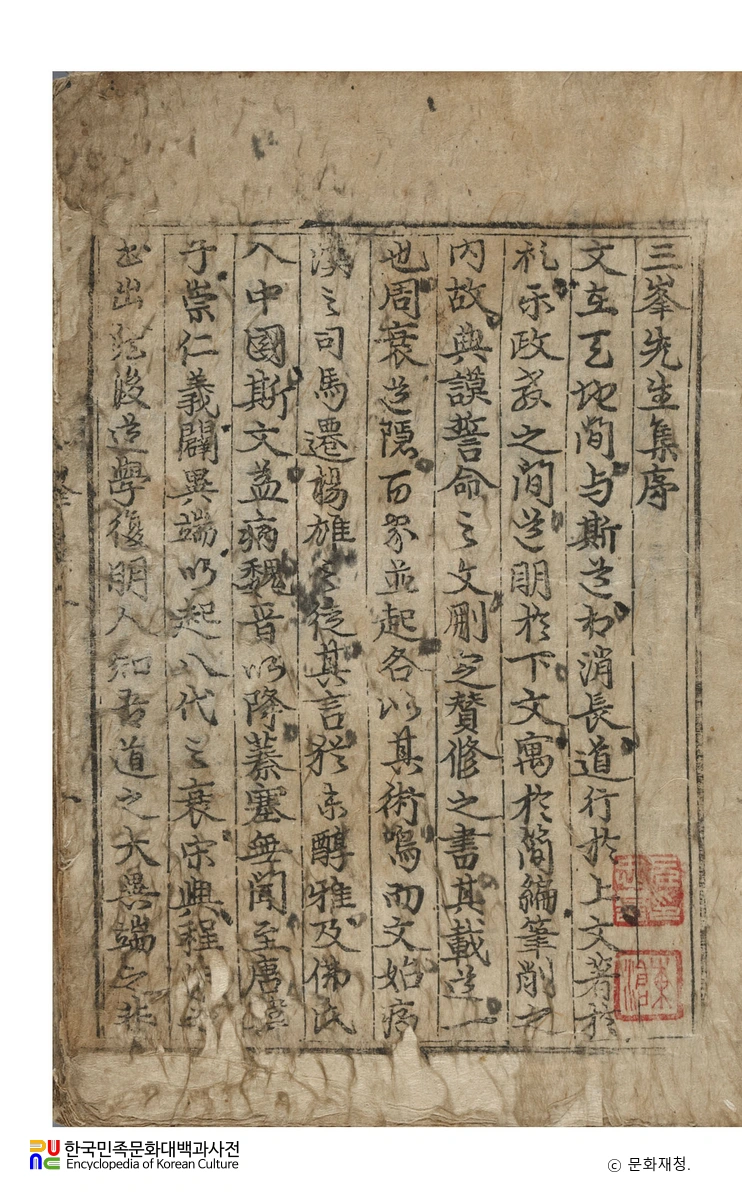 三峯先生集序
文在天地間与斯道相消長道行於上文著於
礼乐政教之間道明於下文寓於簡編筆削之
內故典謨誓命之文刪定賛修之書其載道一
也周衰道隱百家並起各以其術鳴而文始病
漢之司馬遷楊雄之徒其言猶未醇雅及佛氏
入中國斯文益病魏晋以降蓁塞無聞至唐韓
子崇仁義闢異端以起八代之衰宋興程朱之
書出然後道學復明人知吾道之大異端之非
한국민족문화대백과사전
Encyclopedia of Korean Culture
ⓒ 문화재청.